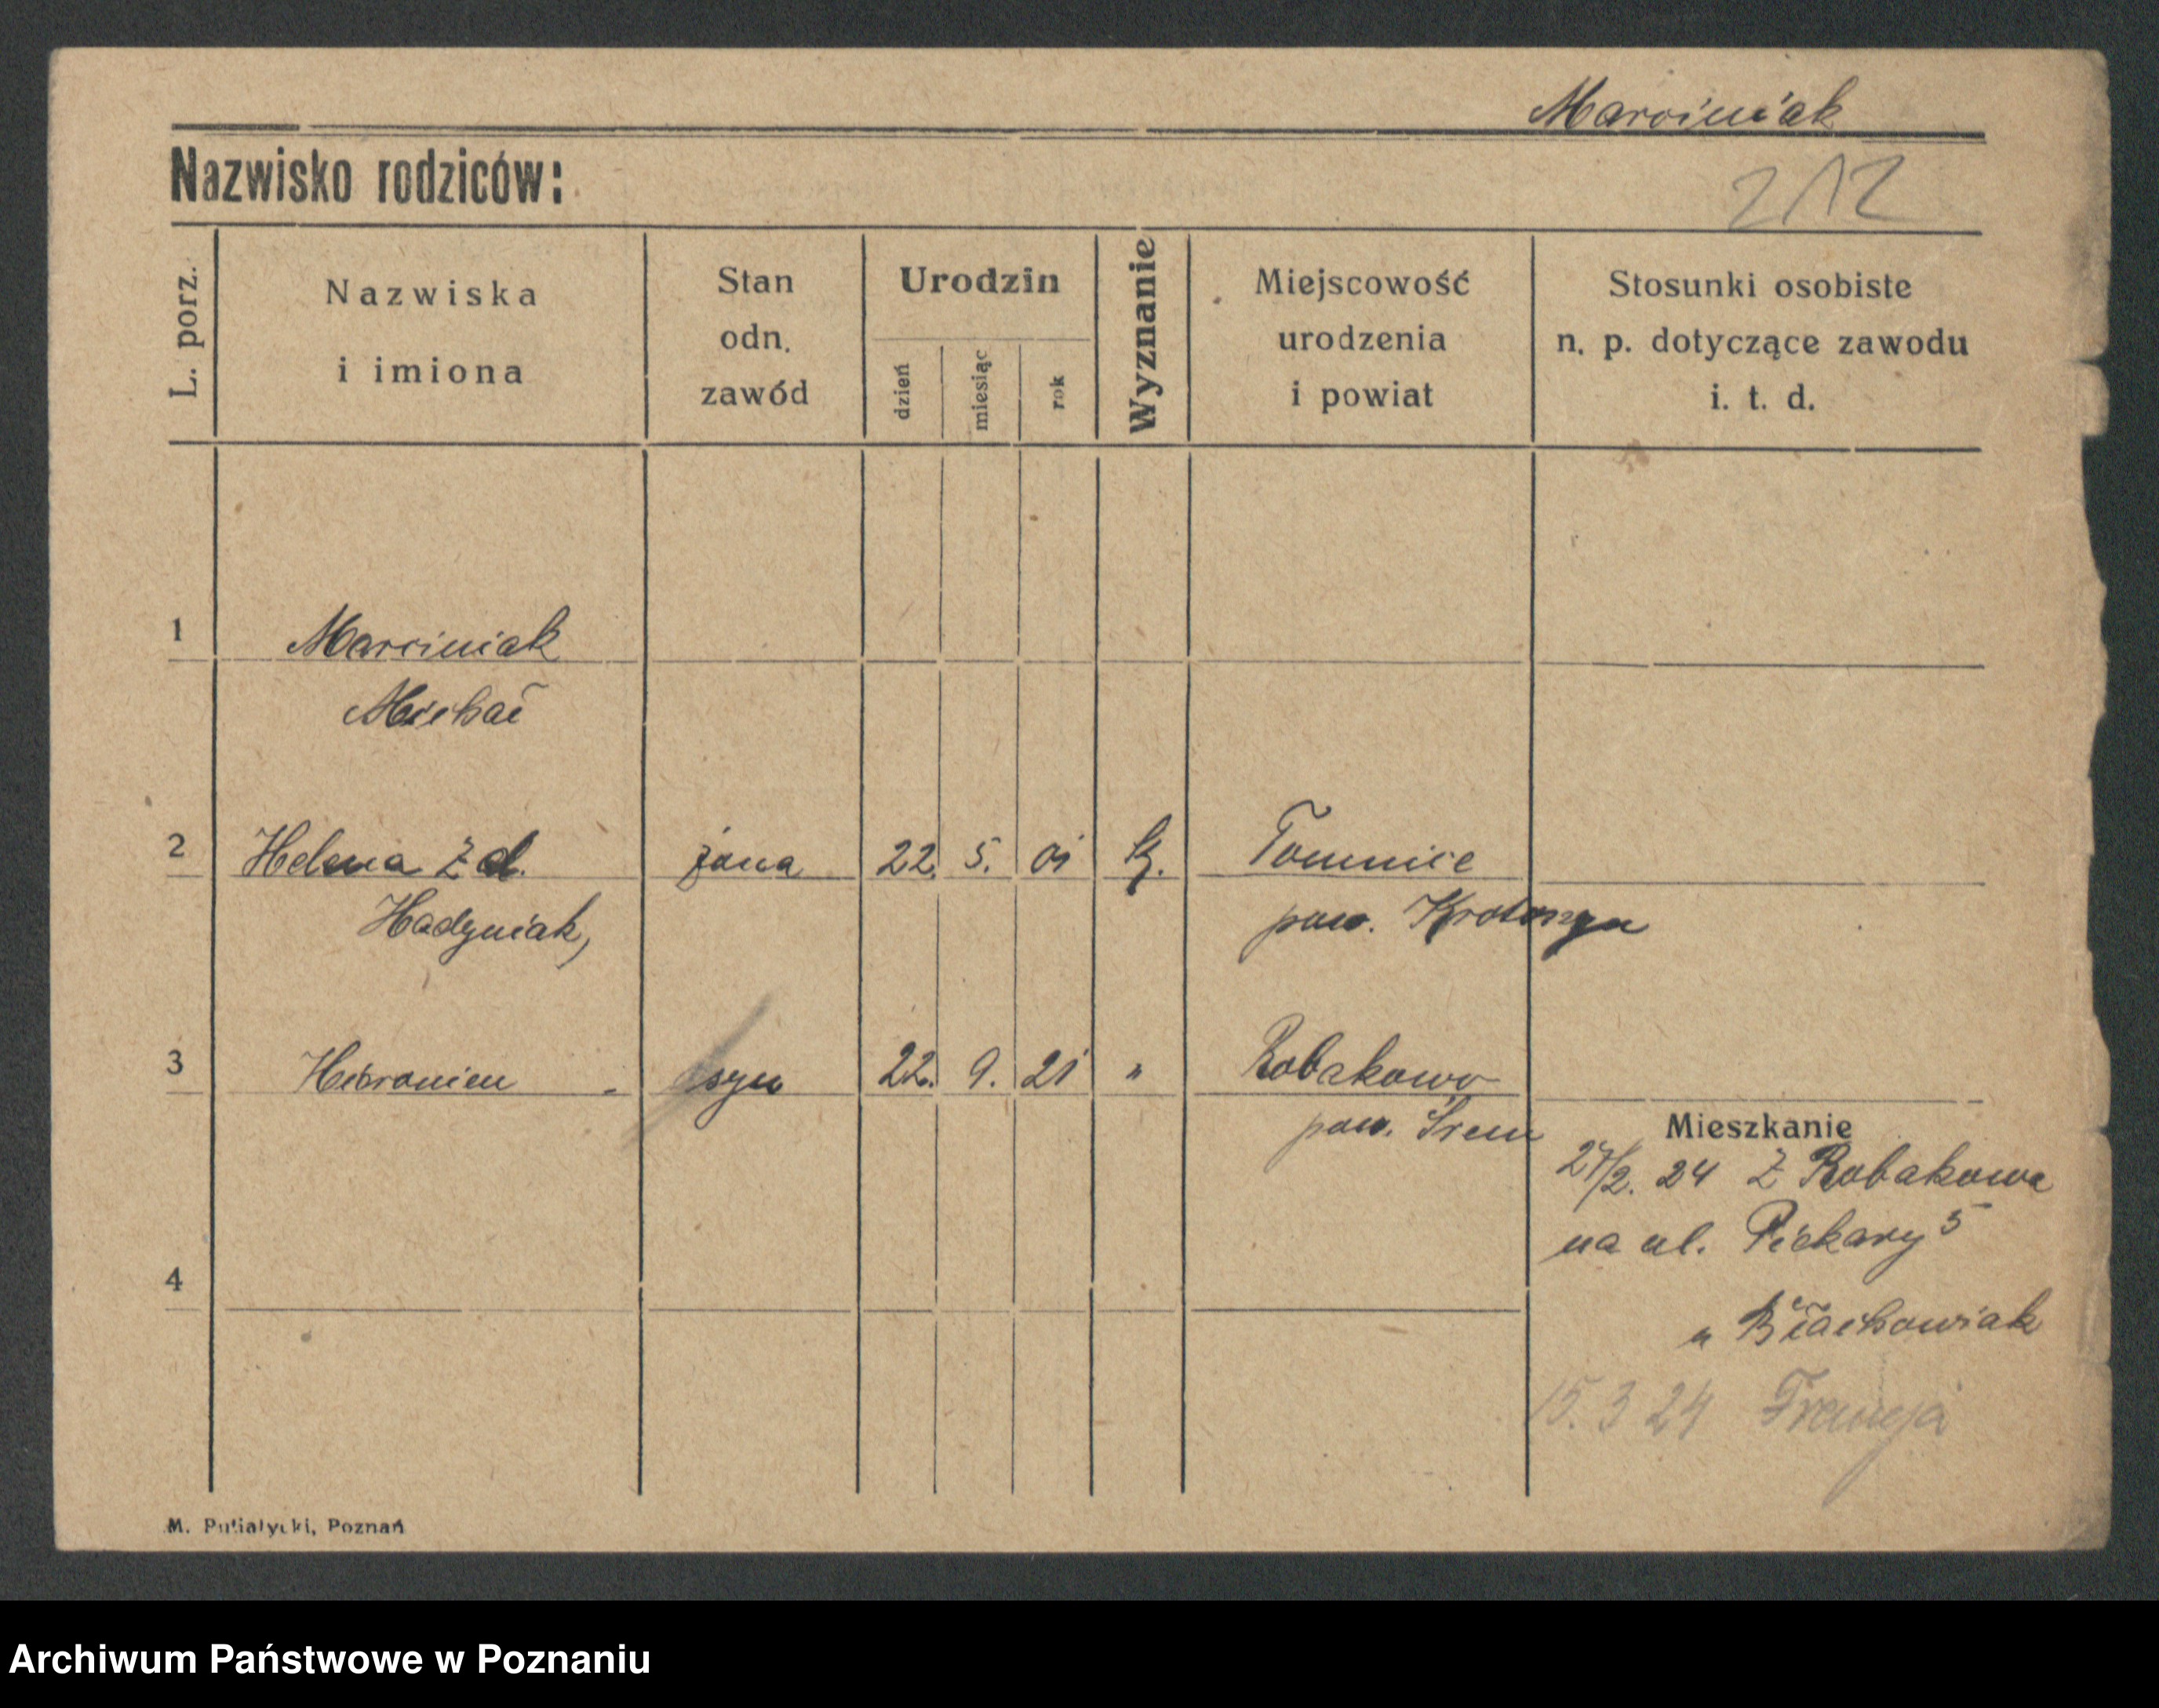 Marciniak
Nazwisko rodziców:
212
L. porz.
Nazwiska
i imiona
Stan
odn.
zawód
Urodzin
dzień
miesiąc
rok
Wyznanie
Miejscowość
urodzenia
i powiat
Stosunki osobiste
n. p. dotyczące zawodu
i. t. d.
1 Marciniak
Michał
2 Helena z d. żona 22. 5. 01 k. Tomnice
Hadyniak, pow. Krotoszyn
3 Hieronim - syn 22. 9. 21 " Robakowo
pow. Śrem
Mieszkanie
27/2. 24 z Robakowa
na ul. Piekary 5
4
u Błachowiak
15. 3 24 Francja
M. Putiatycki, Poznań
Archiwum Państwowe w Poznaniu